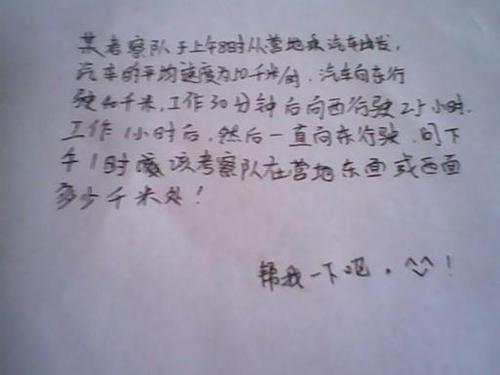 某考察队于上午8时从营地乘汽车出发,
汽车的平均速度为10千米/时.汽车向东行
驶40千米,工作30分钟后向西行驶2.5小时.
工作1小时后,然后一直向东行驶.问下
午1时该考察队在营地东面或西面
多少千米处!
帮我一下吧,^^!